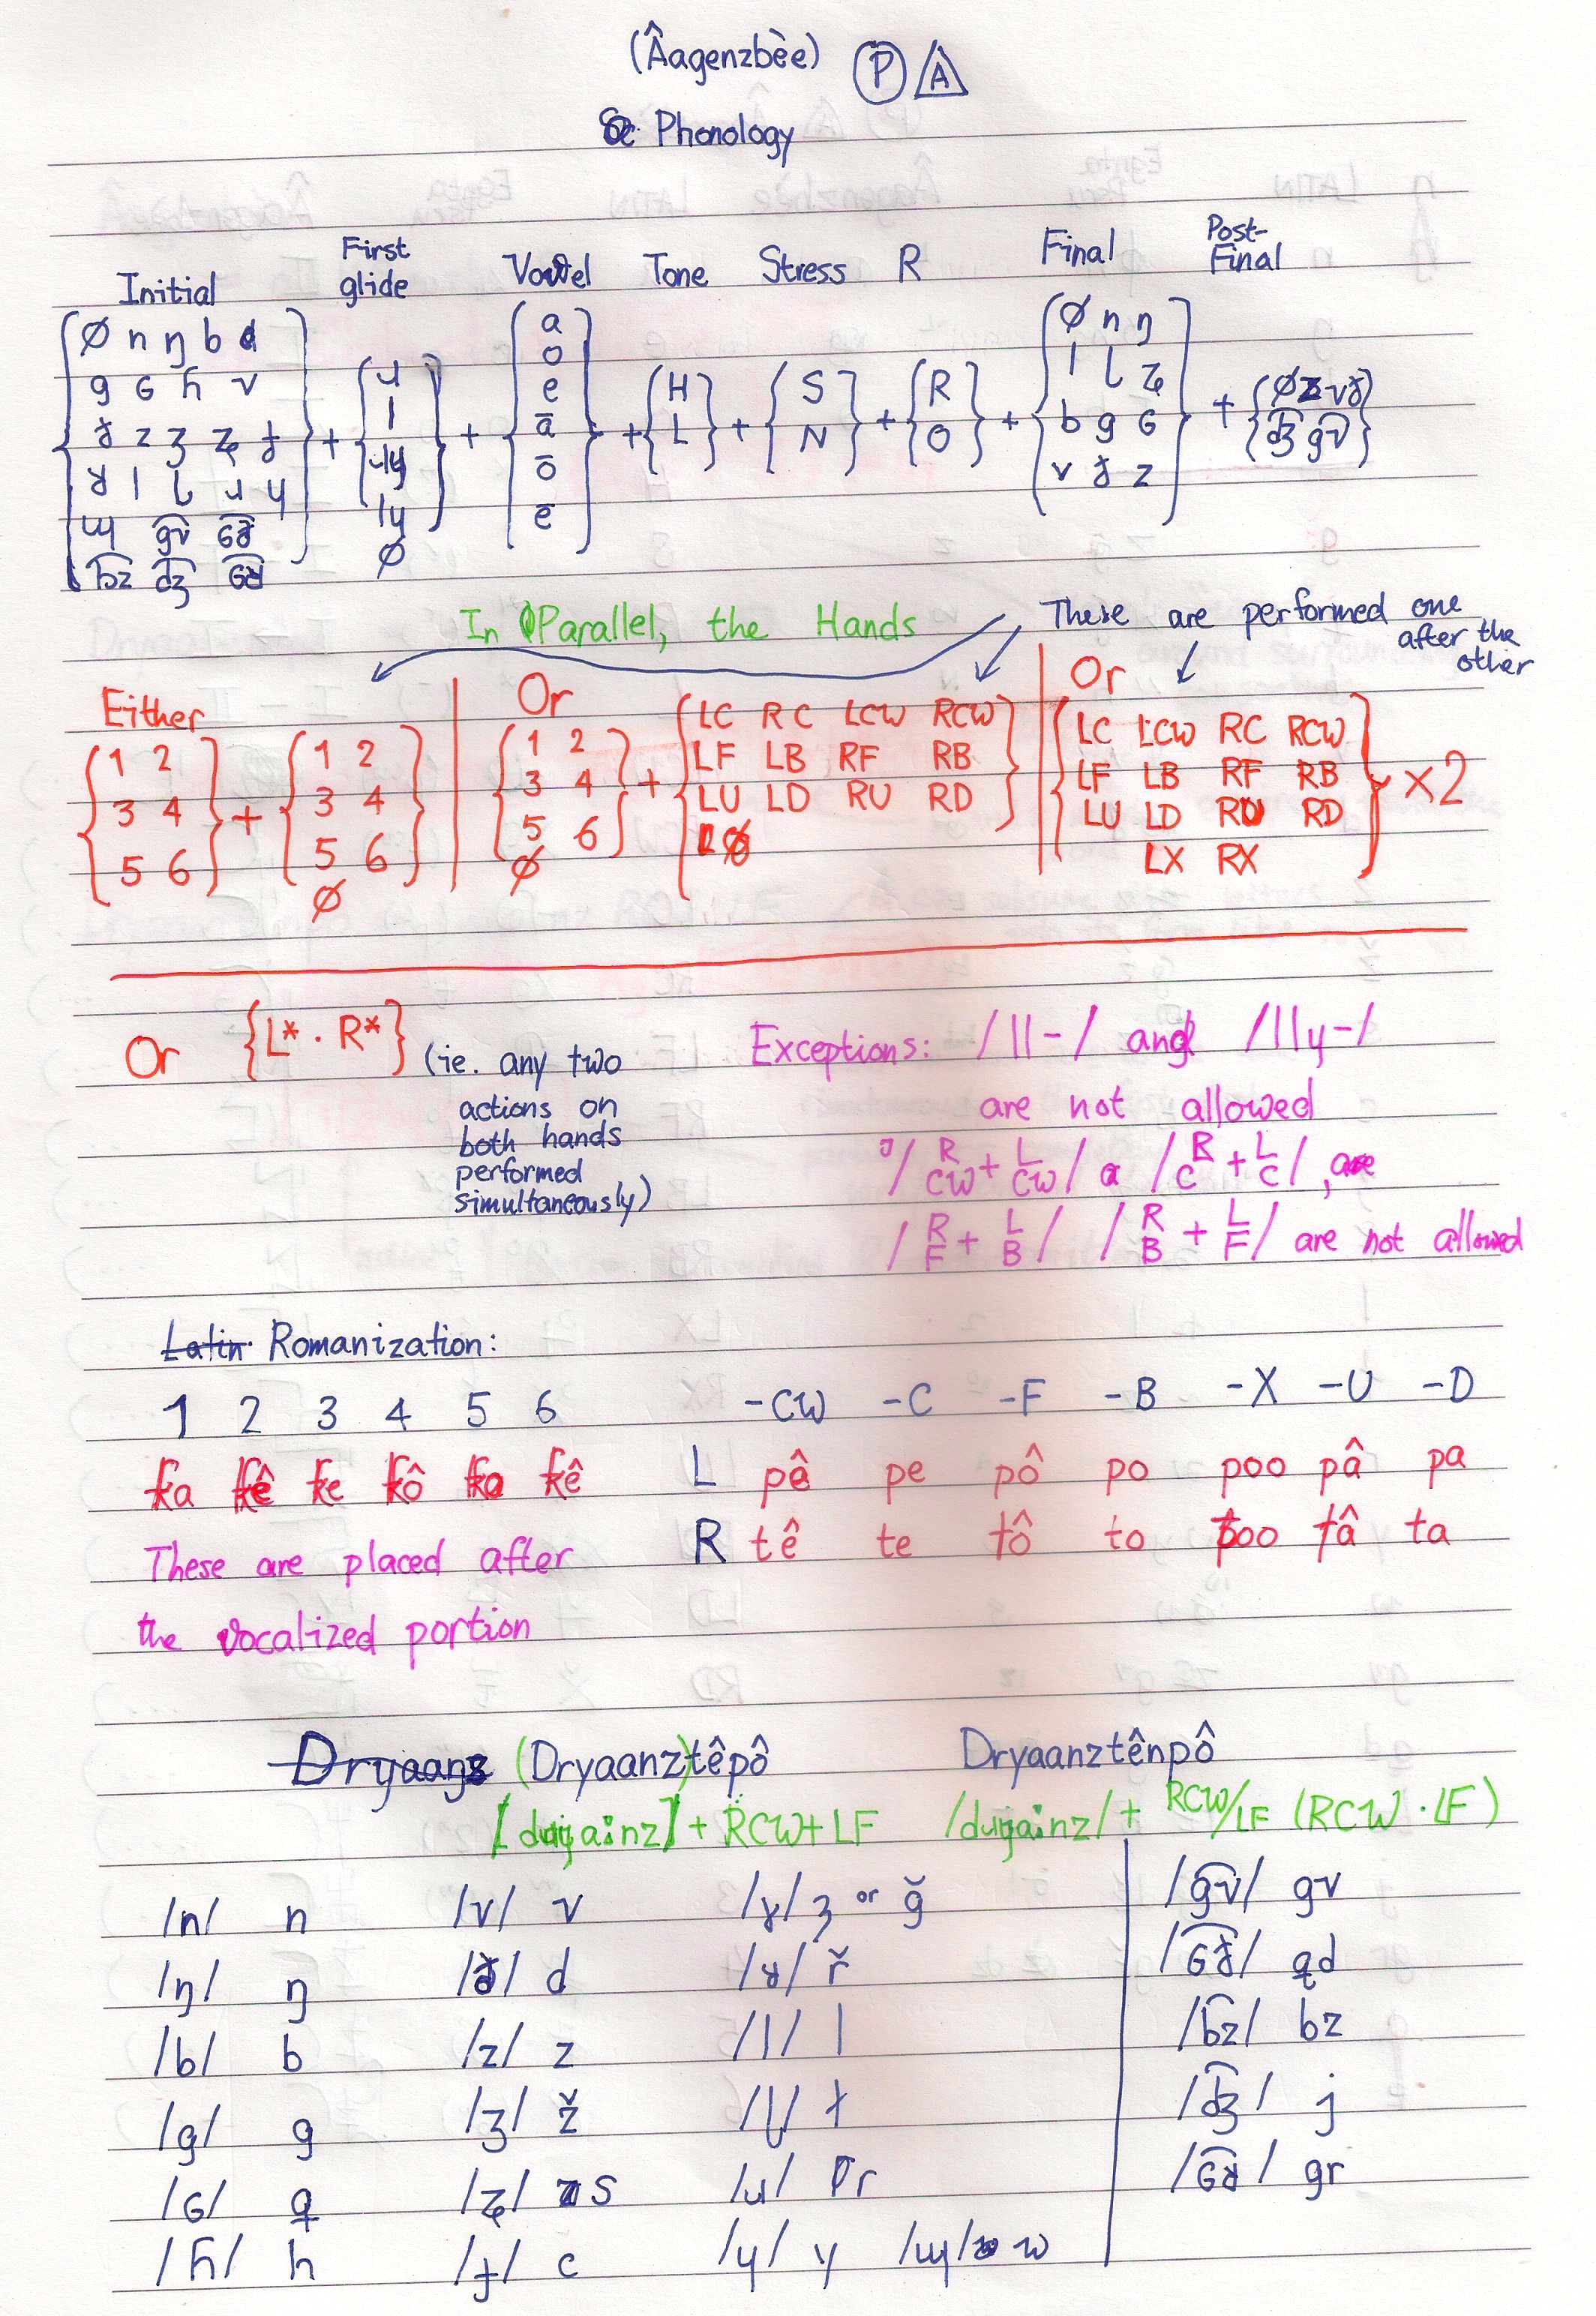 (Âagenzbèe) P A
Phonology
Initial First glide Vowel Tone Stress R Final Post-Final
∅ n ŋ b d
g ɢ ɦ v
ð z ʒ ʑ ɟ
ʁ l ɭ ɹ ɥ
ɰ g͡v ɢ͡ð
b͡z d͡ʒ ɢ͡ʁ
+
ɹ
l
ɹɥ
ly
∅
+
a
o
e
ā
ō
ē
+ H L + S N + R O +
∅ n ŋ
l ɭ ʑ
b g ɢ
v ð z
+
∅ z v ð
d͡ʒ g͡v
In Parallel, the Hands
These are performed one
after the
other
Either
1 2
3 4
5 6
+
1 2
3 4
5 6
∅
Or
1 2
3 4
5 6
∅
+
LC RC LCW RCW
LF LB RF RB
LU LD RU RD
Or
LC LCW RC RCW
LF LB RF RB
LU LD RU RD
LX RX
×2
Or {L* · R*} (ie. any two
actions on
both hands
performed
simultaneously)
Exceptions: /ll-/ and /lly-/
are not allowed
/R CW + L CW/ /R C + L C/,
/R F + L B/ /R B + L F/ are not allowed
Latin Romanization:
1 2 3 4 5 6 -CW -C -F -B -X -U -D
ka kê ke kô ko kê L pê pe pô po poo pâ pa
R tê te tô to too tâ ta
These are placed after
the vocalized portion
Dryaanz (Dryaanz)têpô Dryaanztênpô
+ RCW+LF + RCW/LF (RCW · LF)
/n/ n /v/ v /ɣ/ ʒ or ğ /g͡v/ gv
/ŋ/ ŋ /ð/ d /ʁ/ ř /ɢ͡ð/ qd
/b/ b /z/ z /l/ l /b͡z/ bz
/g/ g /ʒ/ ž /ɭ/ ł /d͡ʒ/ j
/ɢ/ q /ʑ/ s /ɹ/ r /ɢ͡ʁ/ gr
/ɦ/ h /ɟ/ c /ɥ/ y /ɰ/ w